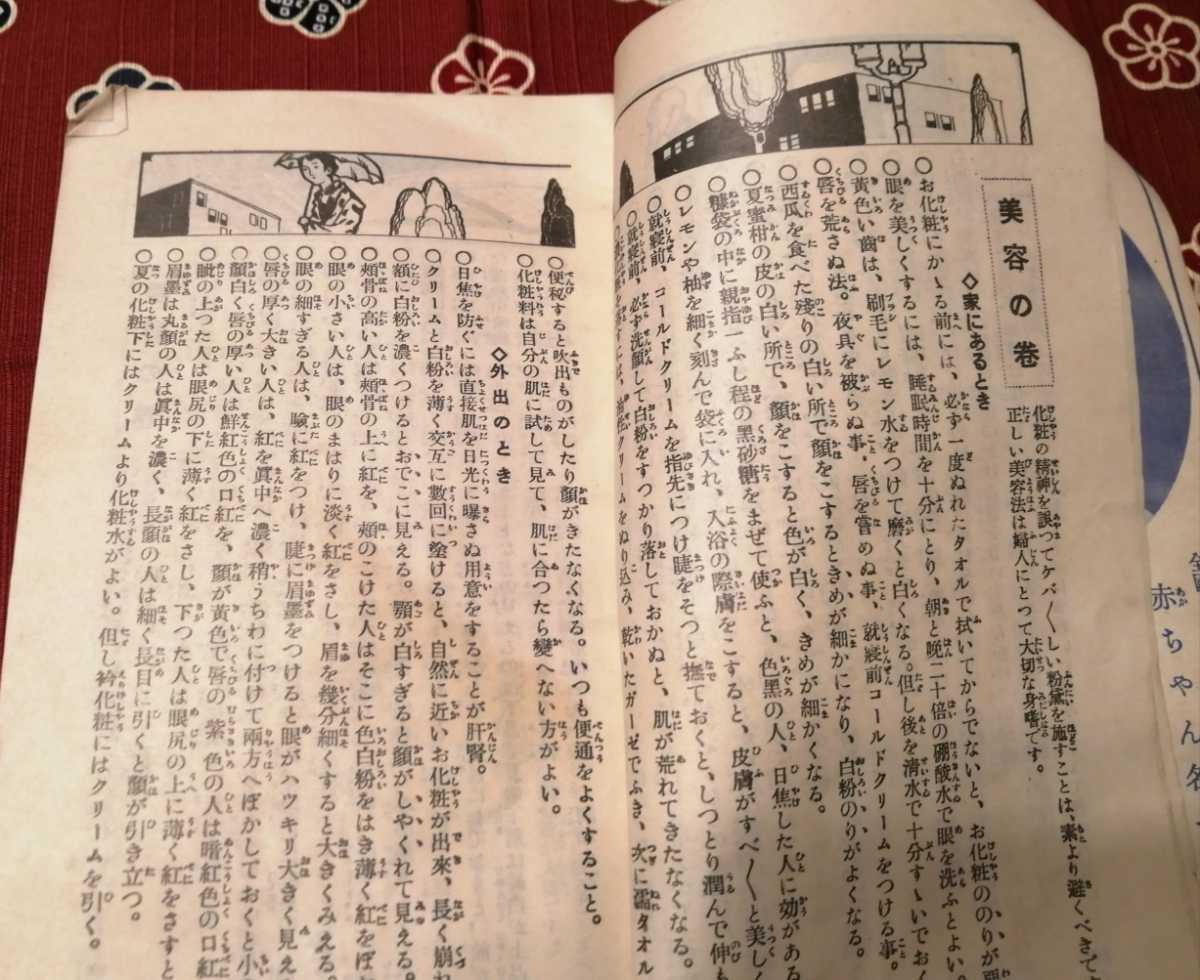 美容の卷
化粧の精神を誤つてケバ〱しい粉黛を施すことは、素より避くべきで
正しい美容法は婦人にとつて大切な身嗜です。
◇家にあるとき
○お化粧にかゝる前には、必ず一度ぬれたタオルで拭いてからでないと、お化粧ののりが
○眼を美しくするには、睡眠時間を十分にとり、朝と晩二十倍の硼酸水で眼を洗ふとよい。
○黄色い齒は、刷毛にレモン水をつけて磨くと白くなる。但し後を清水で十分すゝいでおく
○唇を荒さぬ法。夜具を被らぬ事、唇を嘗めぬ事、就寝前コールドクリームをつける事。
○西瓜を食べた殘りの白い所で顔をこするとき、めが細かになり、白粉のりがよくなる。
○夏蜜柑の皮の白い所で、顔をこすると色が白く、きめが細かくなる。
○糠袋の中に親指一ふし程の黑砂糖をまぜて使ふと、色黑の人、日焦した人に効がある
○レモンや柚を細く刻んで袋に入れ、入浴の際膚をこすると、皮膚がすべ〱と美しく
○就寝前、コールドクリームを指先につけ睫をそつと撫ておくと、しつとり潤んで伸も
○就寝前、必ず洗顔して白粉をすつかり落しておかぬと、肌が荒れてきたなくなる。
クリームをぬり込み、乾いたガーゼでふき、次に濡タオル
○便秘すると吹出ものがしたり顔がきたなくなる。いつも便通をよくすること。
○化粧料は自分の肌に試して見て、肌に合つたら變へない方がよい。
◇外出のとき
○日焦を防ぐには直接肌を日光に曝さぬ用意をすることが肝腎。
○クリームと白粉を薄く交互に數回に塗けると、自然に近いお化粧が出來、長く崩れ
○額に白粉を濃くつけるとおでこに見える。顎が白すぎると顔がしやくれて見える。
○頰骨の高い人は頰骨の上に紅を、頰のこけた人はそこに色白粉をはき薄く紅をぼ
○眼の小さい人は、眼のまはりに淡く紅をさし、眉を幾分細くすると大きくみえる。
○眼の細すぎる人は、瞼に紅をつけ、睫に眉墨をつけると眼がハツキリ大きく見え
○唇の厚く大きい人は、紅を眞中へ濃く稍うちわに付けて兩方へぼかしておくと小
○顔白く唇の厚い人は鮮紅色の口紅を、顔が黄色で唇の紫色の人は暗紅色の口紅
○眦の上つた人は眼尻の下に薄く紅をさし、下つた人は眼尻の上に薄く紅をさすと
○眉墨は丸顔の人は眞中を濃く、長顔の人は細く長目に引くと顔が引き立つ。
○夏の化粧下にはクリームより化粧水がよい。但し衿化粧にはクリームを引く。
赤ちゃん